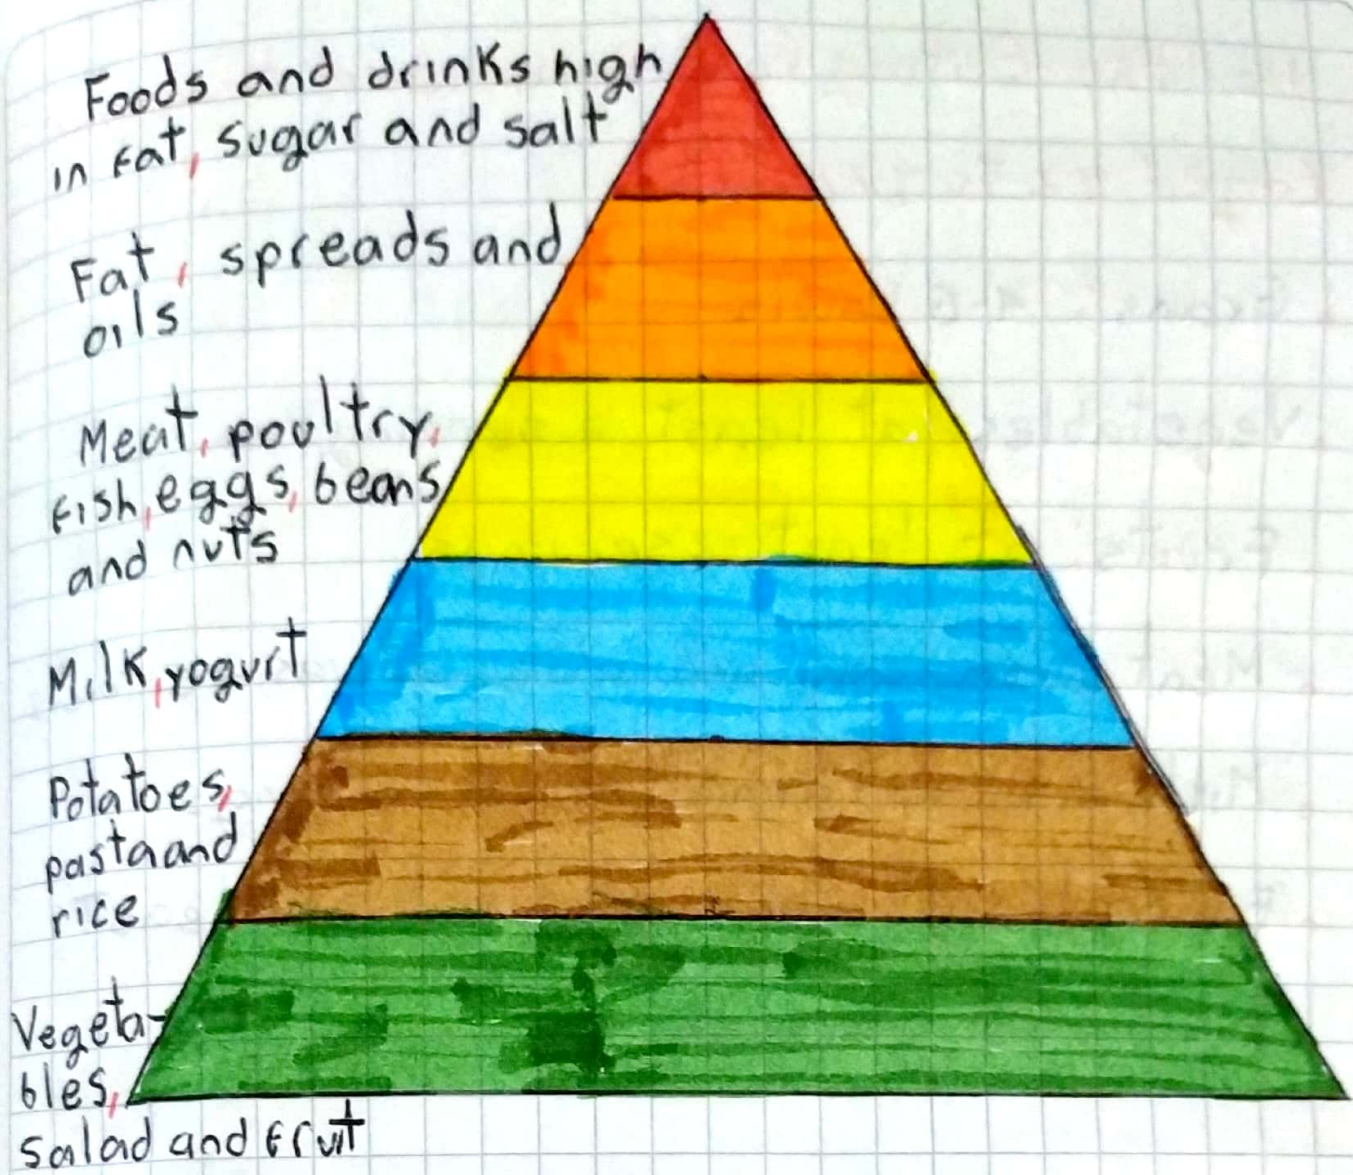 Foods and drinks high
in fat, sugar and salt
Fat, spreads and
oils
Meat, poultry,
fish, eggs, beans
and nuts
Milk, yogurt
Potatoes,
pasta and
rice
Vegeta-
bles,
salad and fruit